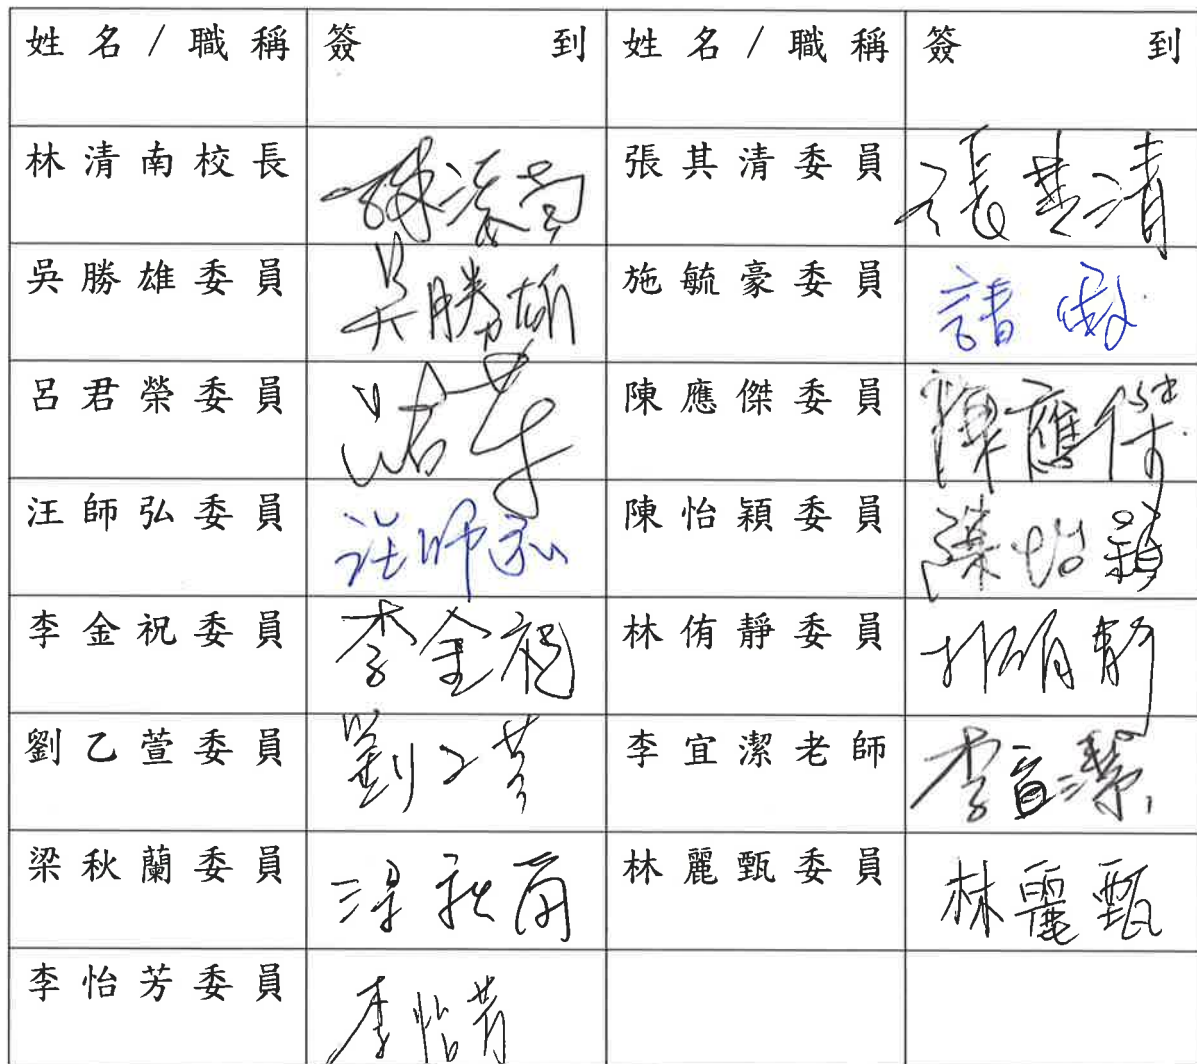 姓名/職稱 簽到 姓名/職稱 簽到
林清南校長 林清南 張其清委員 張其清
吳勝雄委員 吳勝雄 施毓豪委員 請假
呂君榮委員 陳應傑委員 陳應傑
汪師弘委員 汪師弘 陳怡穎委員 陳怡穎
李金祝委員 李金祝 林侑靜委員 林侑靜
劉乙萱委員 劉乙萱 李宜潔老師 李宜潔
梁秋蘭委員 梁秋蘭 林麗甄委員 林麗甄
李怡芳委員 李怡芳